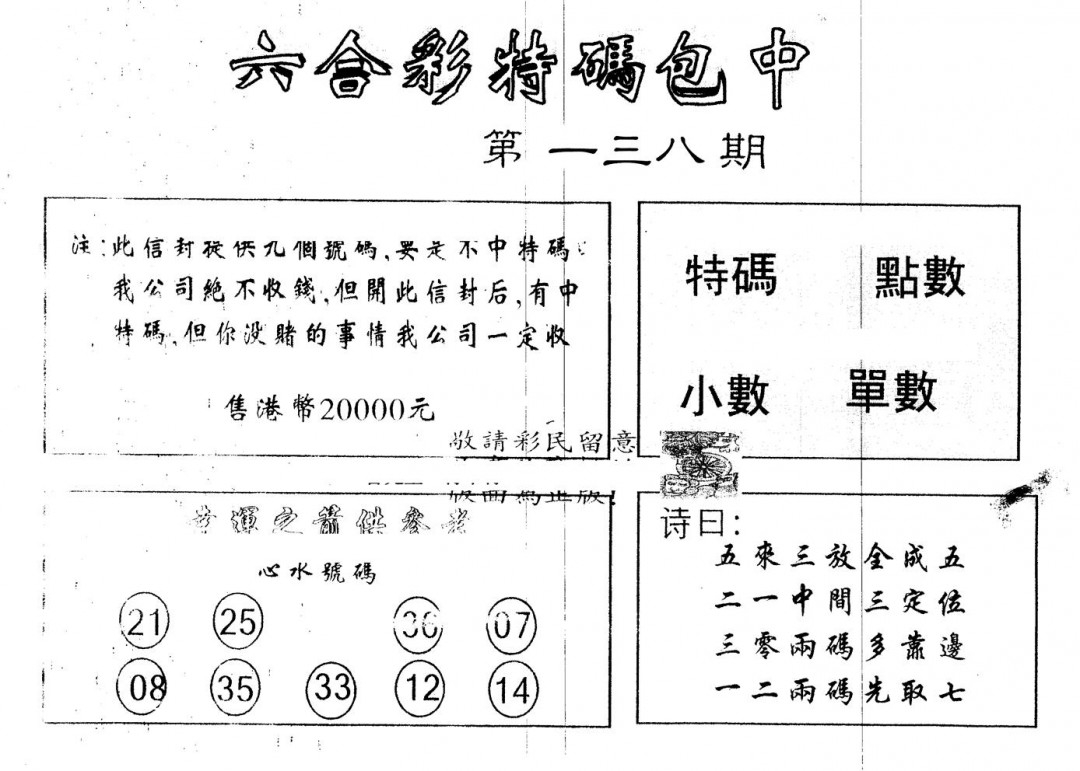 六合彩特碼包中
第一三八期
注:此信封提供九個號碼,要是不中特碼,
我公司絕不收錢,但開此信封后,有中
特碼,但你没賭的事情我公司一定收
售港幣20000元
特碼 點數
小數 單數
敬請彩民留意
版面爲正版!
幸運之箭供參考
心水號碼
21 25 36 07
08 35 33 12 14
诗曰:
五來三放全成五
二一中間三定位
三零兩碼多靠邊
一二兩碼先取七